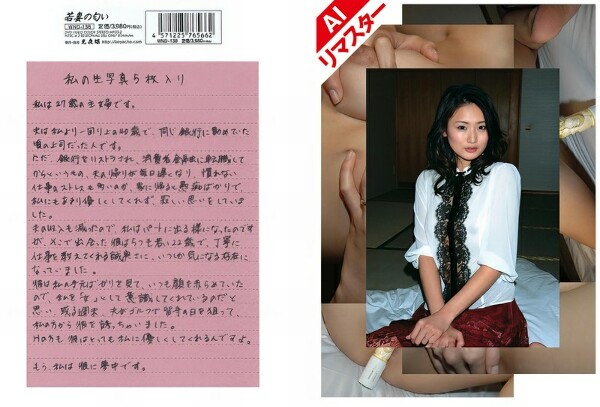 若妻の匂い
WNG-136 定価3,980円(税込)
定価/3,980円(税込)
4 571225 765662
WNG-136
AI
リマスター
私の生写真5枚入り
私は27歳の主婦です。
夫は私より一回り上の40歳で、同じ銀行に勤めていた
頃の上司だった人です。
ただ、銀行をリストラされ、消費者金融に転職して
からというもの、夫の帰りが毎日遅くなり、慣れない
仕事のストレスも多いのか、家に帰ると愚痴ばかりで、
私にもあまり優しくしてくれず、寂しい思いをしていま
した。
夫の収入も減ったので、私はパートに出る様になったのです
が、そこで出会った彼は5つも若い22歳で、丁寧に
仕事を教えてくれる誠実さに、いつしか気になる存在に
なっていました。
彼は私の手元ばかりを見て、いつも顔を赤らめていた
ので、私を「女」として意識してくれているのだと
思い、或る週末、夫がゴルフで留守の日を狙って、
私の方から彼を誘っちゃいました。
Hの方も彼はとっても私に優しくしてくれるんですよ。
もう、私は彼に夢中です。